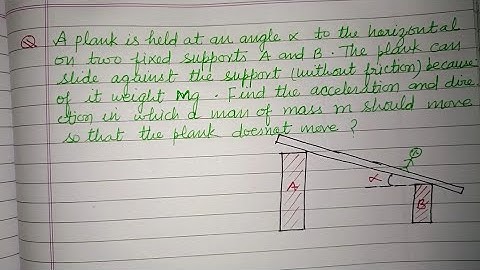 Q A plank is held at an angle α to the horizontal
on two fixed supports A and B. The plank can
slide against the support (without friction) because
of it weight Mg. Find the acceleration and dire
ction in which a man of mass m should move
so that the plank doesnot move?
A
α
B